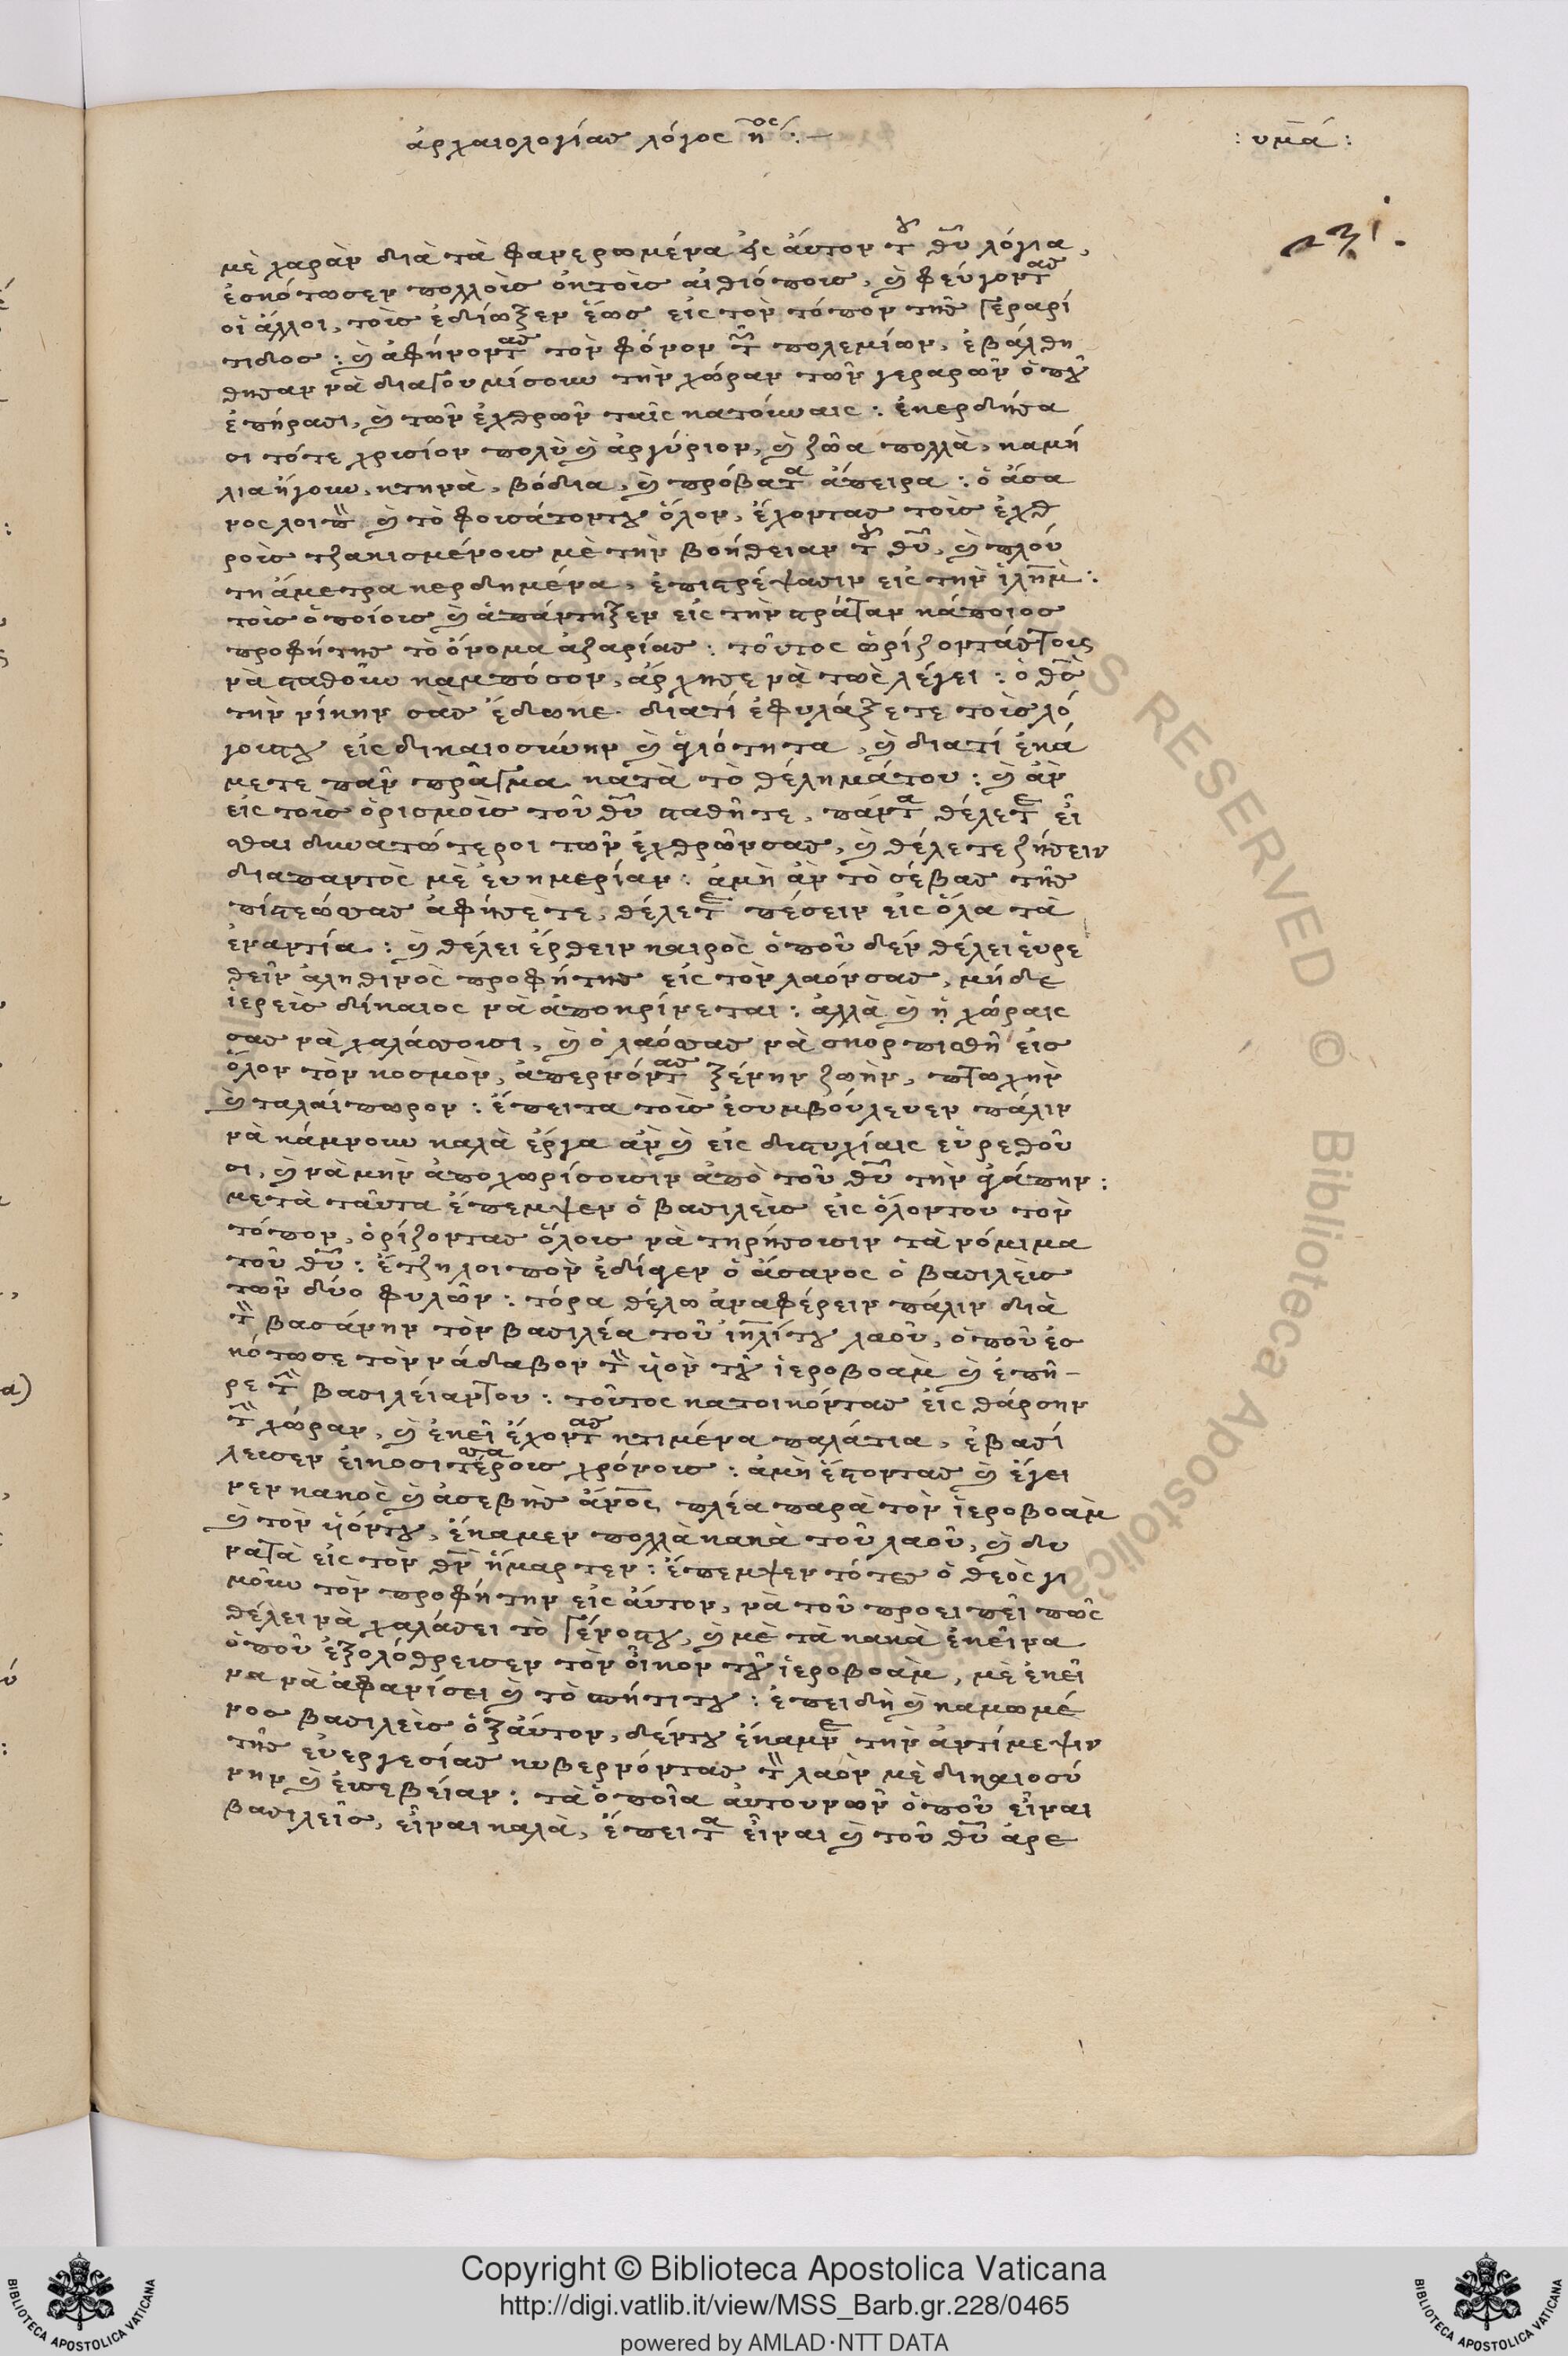 ἀρχαιολογίας λόγος η^ος :—
: υμα :
μὲ χαρὰν διὰ τὰ φανερωμένα εἰς ἀυτὸν τοῦ θῦ λόγια,
ἐσκότωσεν πολλοὺς ἐκ τοὺς αἰθιόπους, καὶ φεύγοντας
οἱ ἄλλοι, τοὺς ἐδίωξεν ἕως εἰς τὸν τόπον τῆς γεραρί
τιδος : καὶ ἀφήνοντας τὸν φόνον τῶν πολεμίων, ἐβάλθη
θησαν νὰ διαγουμίσουν τὴν χώραν τῶν γεραρῶν ὁποῦ
ἐπήρασι, καὶ τῶν ἐχθρῶν ταῖς κατούναις : ἐκερδήσα
σι τότε χρυσίον πολὺ καὶ ἀργύριον, καὶ ζῶα πολλὰ, καμή
λια ἤγουν, κτηνὰ, βόδια, καὶ πρόβατα ἄπειρα : ὁ ἄσα
νος λοιπὸν καὶ τὸ φουσάτον του ὅλον, ἔχοντας τοὺς ἐχθ
ροὺς τζακισμένους μὲ τὴν βοήθειαν τοῦ θῦ, καὶ πλού
τη ἄμετρα κερδημένα, ἐπιστρέψασιν εἰς τὴν ἱλημ :
τοὺς ὁποίους καὶ ἀπάντηξεν εἰς τὴν στράταν κάποιος
προφήτης τὸ ὄνομα ἀζαρίας : τοῦτος ὡρίζοντάς τους
νὰ σταθοῦν καμπόσον, ἄρχησε νὰ τοὺς λέγει : ὁ θς
τὴν νίκην σᾶς ἔδωκε διατί ἐφυλάξετε τοὺς λό
γους του εἰς δικαιοσύνην καὶ ἁγιότητα, καὶ διατί ἐκά
μετε πᾶν πρᾶγμα κατὰ τὸ θέλημά του : καὶ ἂν
εἰς τοὺς ὁρισμοὺς τοῦ θῦ σταθῆτε, πάντα θέλετε εἶ
σθαι δυνατώτεροι τῶν ἐχθρῶν σας, καὶ θέλετε ζήσειν
διαπαντὸς μὲ ἐυημερίαν : ἀμὴ ἂν τὸ σέβας τῆς
πίστεώς σας ἀφήσετε, θέλετε πέσειν εἰς ὅλα τὰ
ἐναντία : καὶ θέλει ἔρθειν καιρὸς ὁποῦ δὲν θέλει ἑυρε
θεῖν ἀληθινὸς προφήτης εἰς τὸν λαόν σας, μήδε
ἱερεὺς δίκαιος νὰ ἀποκρίνεται : ἀλλὰ καὶ ἡ χώραις
σας νὰ χαλάσουσι, καὶ ὁ λαός σας νὰ σκορπισθῆ εἰς
ὅλον τὸν κοσμὸν, ἀπερνόντας ξένην ζωὴν, πτωχὴν
καὶ ταλαίπωρον : ἔπειτα τοὺς ἐσυμβούλευεν πάλιν
νὰ κάμνουν καλὰ ἔργα ἂν καὶ εἰς δυστυχίαις εὑρεθοῦ
σι, καὶ νὰ μὴν ἀποχωρίσουσιν ἀπὸ τοῦ θῦ τὴν ἀγάπην :
μετὰ ταῦτα ἔπεμψεν ὁ βασιλεὺς εἰς ὅλον του τὸν
τόπον, ὁρίζοντας ὅλους νὰ τηρήσουσιν τὰ νόμιμα
τοῦ θῦ : ἔτζη λοιπὸν ἐδίαγεν ὁ ἄσανος ὁ βασιλεὺς
τῶν δύο φυλῶν : τόρα θέλω ἀναφέρειν πάλιν διὰ
τὸν βασάνην τὸν βασιλέα τοῦ ἰηλίτου λαοῦ, ὁποῦ ἐσ
κότωσε τὸν νάδαβον τὸν υἱὸν τοῦ ἱεροβοὰμ καὶ ἐπῆ-
ρε τὴν βασιλείαν του : τοῦτος κατοικόντας εἰς θάρσην
τὴν χώραν, καὶ ἐκεῖ ἔχοντας κτιμένα παλάτια, ἐβασί
λευσεν εἰκοσιτέσσαρους χρόνους : ἀμὴ ἔστοντας καὶ ἔγει
νεν κακὸς καὶ ἀσεβὴς ἄνος πλέα παρὰ τὸν ἱεροβοὰμ
καὶ τὸν υἱόν του, ἔκαμεν πολλὰ κακὰ τοῦ λαοῦ, καὶ δυ
νατὰ εἰς τὸν θν ἥμαρτεν : ἔπεμψεν τότες ὁ θεὸς γι
μοῦν τὸν προφήτην εἰς ἀυτὸν, νὰ τοῦ προειπεῖ πῶς
θέλει νὰ χαλάσει τὸ γένος του, καὶ μὲ τὰ κακὰ ἐκεῖνα
ὁποῦ ἐξολόθρευσεν τὸν οἶκον τοῦ ἱεροβοὰμ, μὲ ἐκεῖ
να νὰ ἀφανίσει καὶ τὸ σπήτι του : ἐπειδὴ καὶ καμωμέ
νος βασιλεὺς ὀξ ἀυτὸν, δέν του ἔκαμνε τὴν ἀντίμεψιν
τῆς εὐεργεσίας κυβερνόντας τὸν λαὸν μὲ δικαιοσύ
νην καὶ ἐυσεβείαν : τὰ ὁποῖα ἀυτουνῶν ὁποῦ εἶναι
βασιλεῖς, εἶναι καλὰ, ἔπειτα εἶναι καὶ τοῦ θῦ ἀρε
Copyright © Biblioteca Apostolica Vaticana
http://digi.vatlib.it/view/MSS_Barb.gr.228/0465
powered by AMLAD·NTT DATA